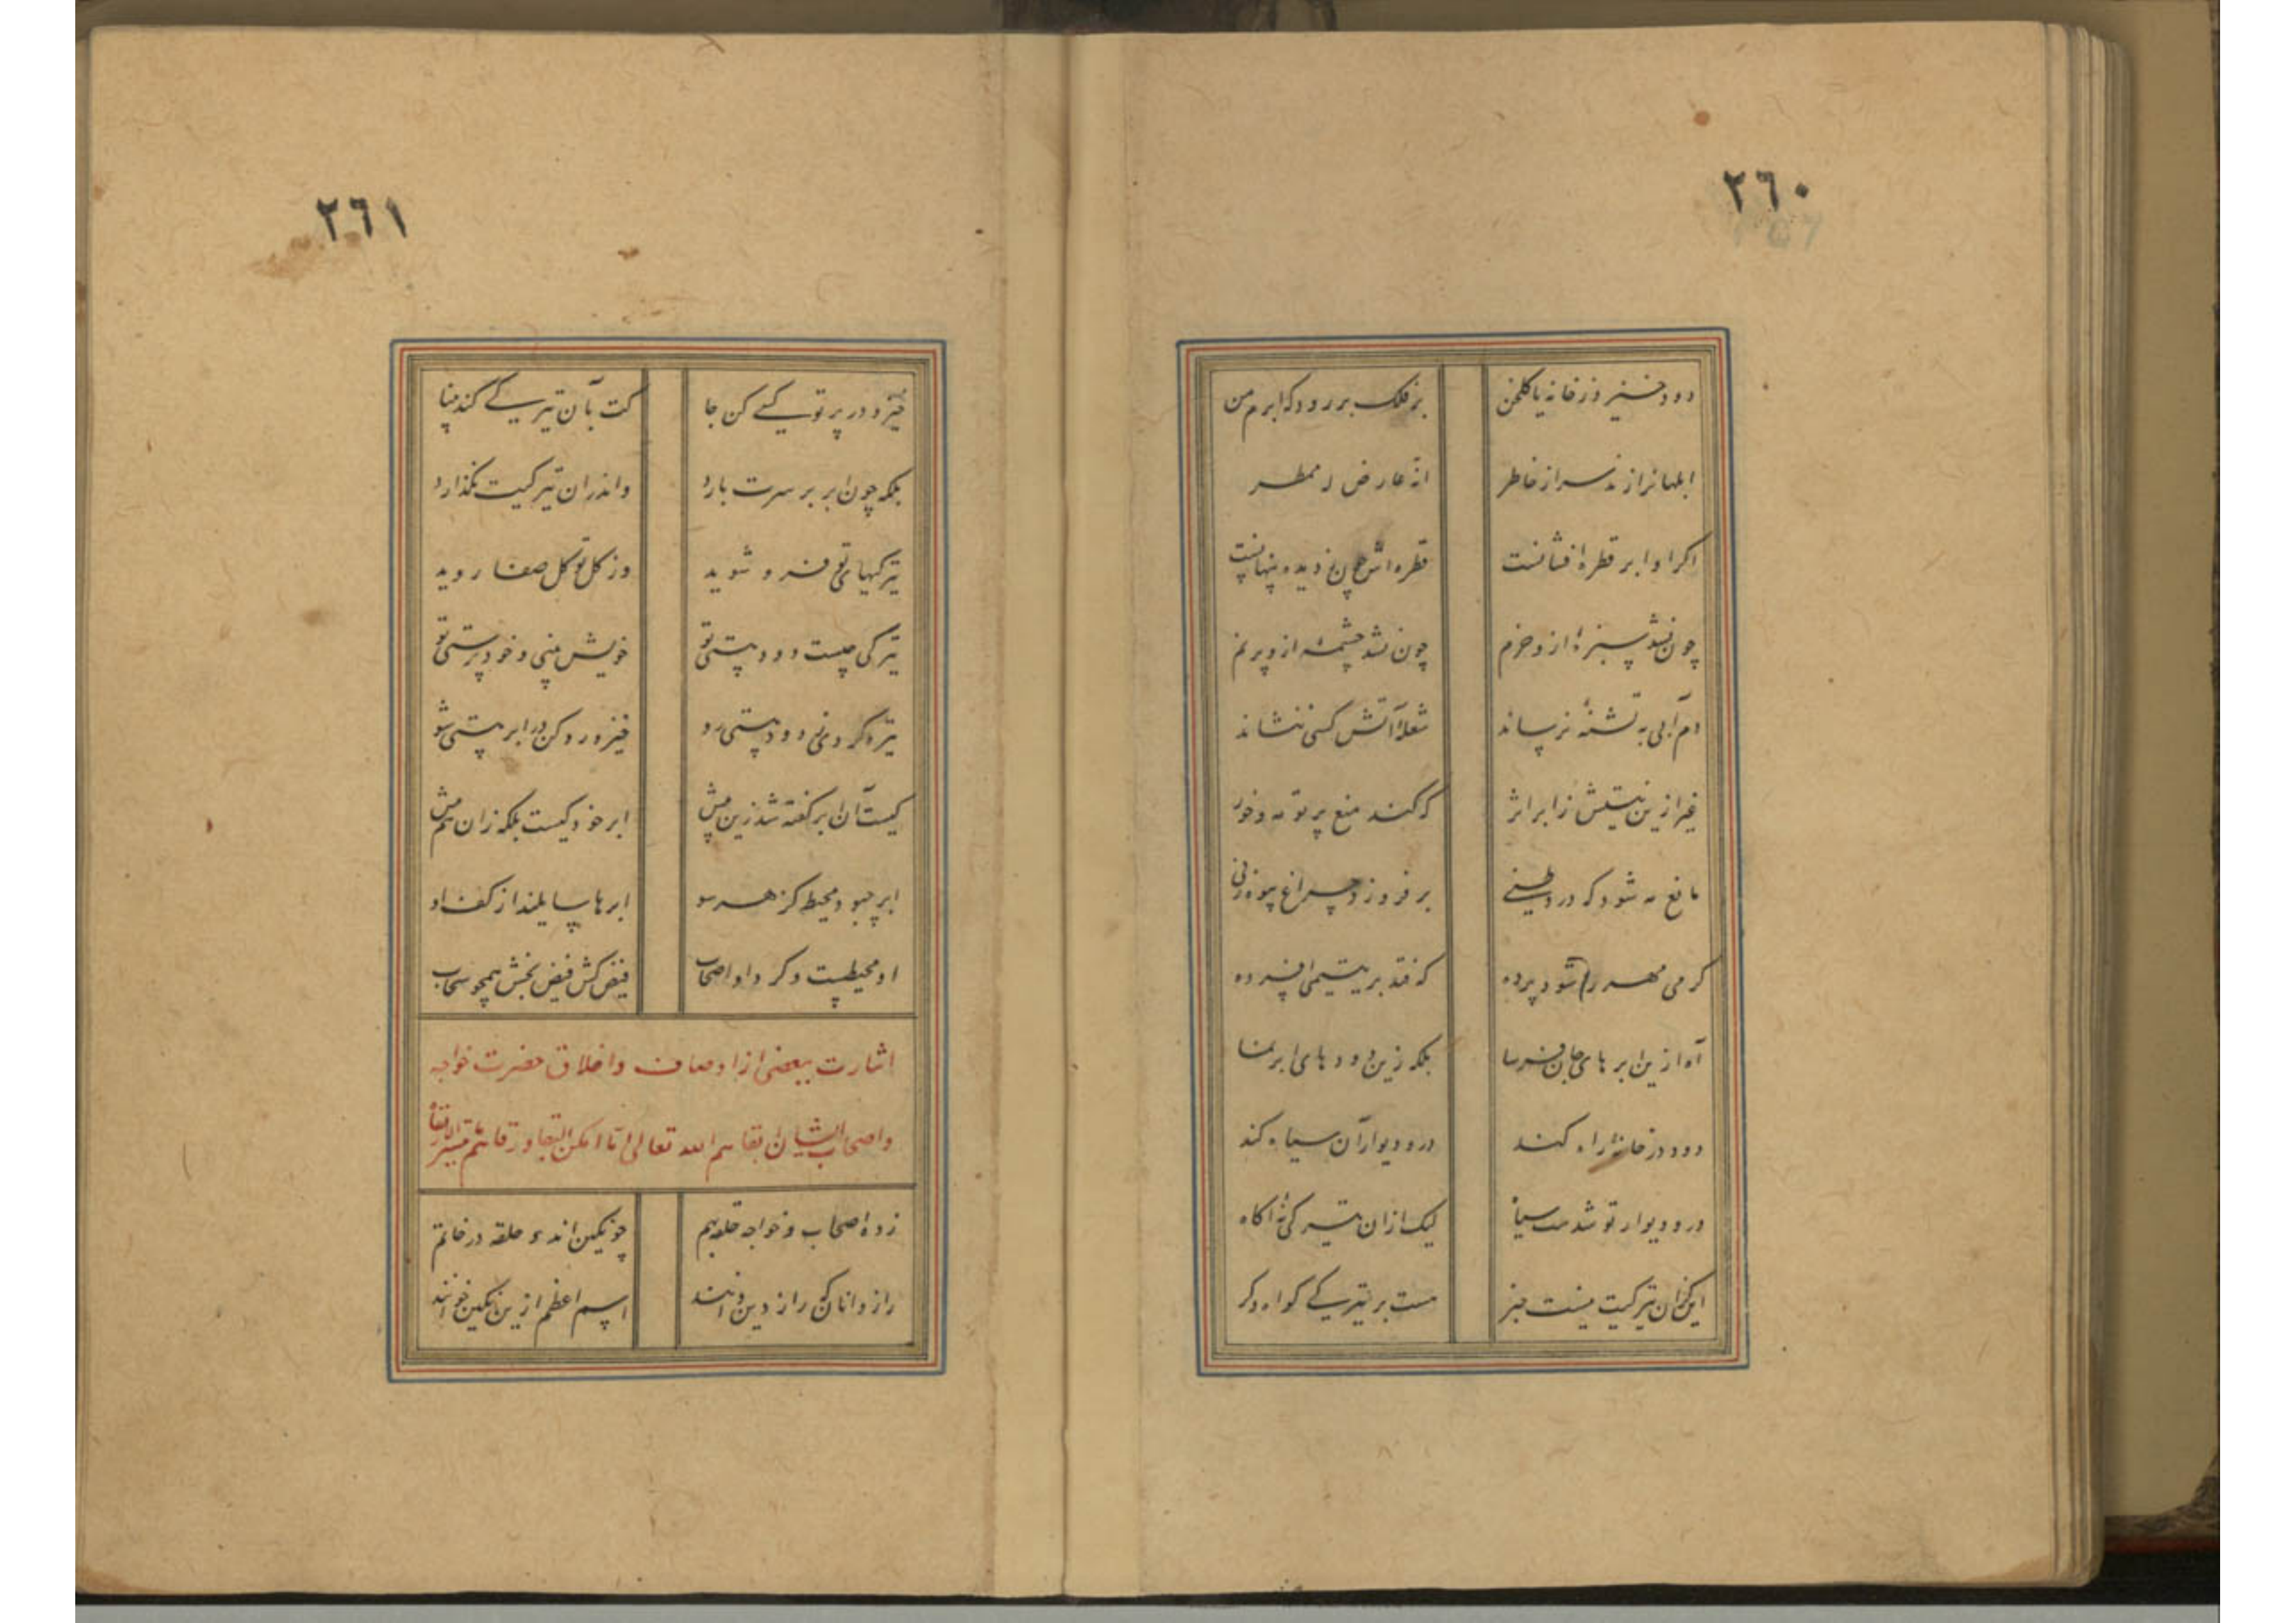 ٢٦٠
دود خیزد ز خانه یا کلخن
بر فلک بر رود که ابرم من
ابلهانرا زند سر از خاطر
انه عارض لـ ممطر
اکر او ابر قطره افشانست
قطره اش چون ز دیده پنهانست
چون نشد سبزه از و خرم
چون نشد چشمه از و پر نم
دم آبی به تشنه نرساند
شعله آتش کسی ننشاند
غیر ازین نیستش ز ابر اثر
که کند منع پرتو مه و خور
مانع مه شود که در وطنی
بر فروزد چراغ بیوه زنی
کرمی مهر را شود پرده
که فتد بر یتیمی افسرده
آه ازین ابرهای جان فرسا
بلکه زین دودهای ابر نما
دود در خانه راه کند
در و دیوار آن سیاه کند
در و دیوار تو شدست سیاه
لیک ازان تیرکی نه آکاه
اینکزان تیرکیت نیست خبر
هست بر تیرکی کواه دکر
٢٦١
خیز و در پرتو کسی کن جا
کت بآن تیرکی کند بینا
بلکه چون ابر بر سرت بارد
واندران تیرکیت نکذارد
تیرکیهای تو فرو شوید
وز کل تو کل صفا روید
تیرکی چیست دود هستی تو
خویش بینی و خود پرستی تو
تیره کردی ز دود هستی رو
خیز و رو کن در ابر هستی شو
کیست آن ابر کفته شد زین پیش
ابر خود کیست بلکه زان هم بیش
ابر چبود محیط کز هر سو
ابرها سایلند از کف او
او محیطست و کرد او اصحاب
فیض کش فیض بخش همچو سحاب
اشارت ببعضی از اوصاف و اخلاق حضرت خواجه
واصحاب ایشان ابقاهم الله تعالی ما امکن البقا و رقاهم ما تیسر الارتقا
زده اصحاب و خواجه حلقه بهم
چو نکین اند و حلقه در خاتم
رازدانان که راز دین دانند
اسم اعظم ازین نکین خوانند